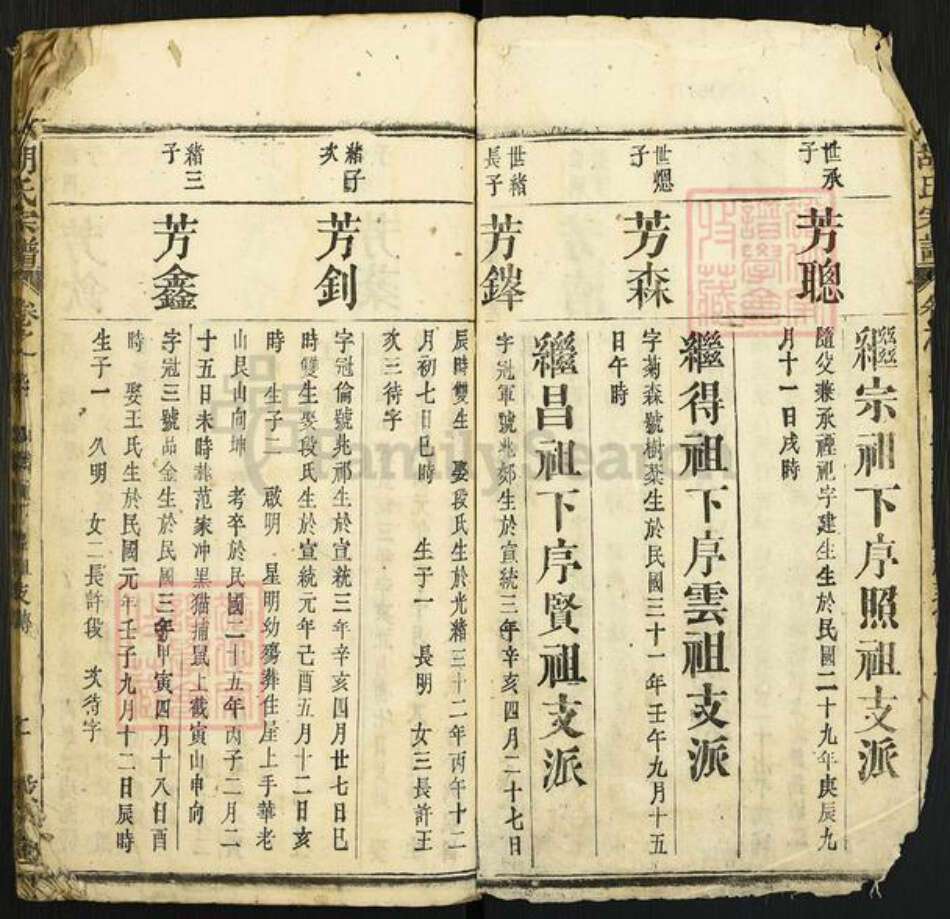 繼宗祖下序照祖支派
世承子
芳聰
隨父兼承禋祀字建生生於民國二十九年庚辰九
月十一日戌時
繼得祖下序雲祖支派
世熜子
芳森
字菊森號樹棻生於民國三十一年壬午九月十五
日午時
繼昌祖下序賢祖支派
世緒長子
芳鏵
字冠軍號兆郊生於宣統三年辛亥四月二十七日
辰時雙生 娶段氏生於光緒三十二年丙午十二
月初七日巳時 生子一 長明 女三長許王
次三待字
緒次子
芳釗
字冠倫號兆祁生於宣統三年辛亥四月廿七日巳
時雙生娶段氏生於宣統元年己酉五月十二日亥
時 生子二 啟明 星明幼殤葬住屋上手華老
山艮山向坤 考卒於民國二十五年丙子二月二
十五日未時葬范家冲黑猫捕鼠上截寅山申向
緒三子
芳鑫
字冠三號品金生於民國三年甲寅四月十八日酉
時 娶王氏生於民國元年壬子九月十二日辰時
生子一 久明 女二長許段 次待字
胡氏宗譜
FamilySearch